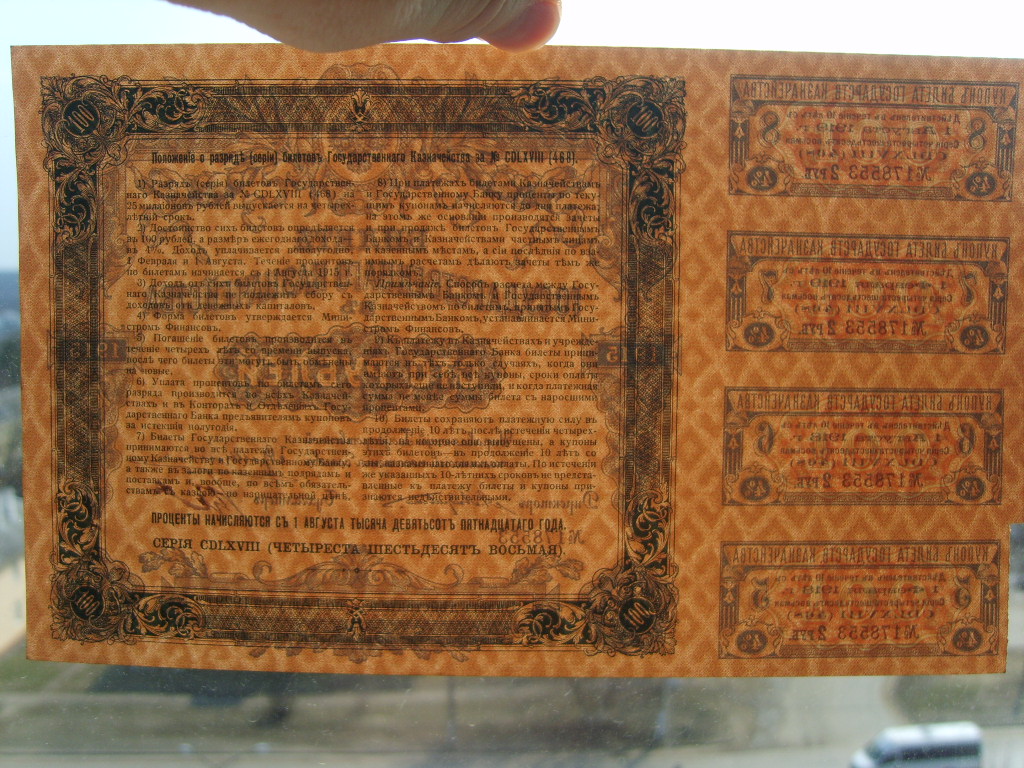 100
100
Положеніе о разрядѣ [серіи] билетовъ Государственнаго Казначейства за № CDLXVIII [468].
1) Разрядъ (серія) билетовъ Государствен-
наго Казначейства за № CDLXVIII (468) на
25 милліоновъ рублей выпускается на четырех-
лѣтній срокъ.
2) Достоинство сихъ билетовъ опредѣляется
въ 100 рублей, а размѣръ ежегоднаго дохода—
въ 4%. Доходъ уплачивается пополугодно,
1 Февраля и 1 Августа. Теченіе процентовъ
по билетамъ начинается съ 1 Августа 1915 г.
3) Доходъ отъ сихъ билетовъ Государствен-
наго Казначейства не подлежитъ сбору съ
доходовъ отъ денежныхъ капиталовъ.
4) Форма билетовъ утверждается Мини-
стромъ Финансовъ.
5) Погашеніе билетовъ производится въ
теченіе четырехъ лѣтъ со времени выпуска,
послѣ чего билеты эти могутъ быть обмѣнены
на новые.
6) Уплата процентовъ по билетамъ сего
разряда производится во всѣхъ Казначей-
ствахъ и въ Конторахъ и Отдѣленіяхъ Госу-
дарственнаго Банка предъявителямъ купоновъ
за истекшія полугодія.
7) Билеты Государственнаго Казначейства
принимаются во всѣ платежи Государствен-
ному Казначейству и Государственному Банку,
а также въ залоги по казеннымъ подрядамъ и
поставкамъ и, вообще, по всѣмъ обязатель-
ствамъ съ казною—по нарицательной цѣнѣ.
8) При платежахъ билетами Казначействамъ
и Государственному Банку проценты по теку-
щимъ купонамъ начисляются до дня платежа;
на этомъ же основаніи производятся зачеты
и при продажѣ билетовъ Государственнымъ
Банкомъ и Казначействами частнымъ лицамъ
и казеннымъ мѣстамъ, а сіи послѣднія по вза-
имнымъ расчетамъ дѣлаютъ зачеты тѣмъ же
порядкомъ.
Примѣчаніе. Способъ расчета между Госу-
дарственнымъ Банкомъ и Государственнымъ
Казначействомъ по билетамъ, принятымъ Госу-
дарственнымъ Банкомъ, устанавливается Мини-
стромъ Финансовъ.
9) Къ платежу въ Казначействахъ и учрежде-
ніяхъ Государственнаго Банка билеты прини-
маются въ тѣхъ только случаяхъ, когда они
имѣютъ при себѣ всѣ купоны, сроки оплаты
которымъ еще не наступили, и когда платежная
сумма не менѣе суммы билета съ наросшими
процентами.
10) Билеты сохраняютъ платежную силу въ
продолженіе 10 лѣтъ послѣ истеченія четырех-
лѣтія, на которое они выпущены, а купоны
этихъ билетовъ—въ продолженіе 10 лѣтъ со
дня, назначеннаго для ихъ оплаты. По истеченіи
же указанныхъ 10-лѣтнихъ сроковъ не предста-
вленные къ платежу билеты и купоны при-
знаются недѣйствительными.
ПРОЦЕНТЫ НАЧИСЛЯЮТСЯ СЪ 1 АВГУСТА ТЫСЯЧА ДЕВЯТЬСОТЪ ПЯТНАДЦАТАГО ГОДА.
СЕРІЯ CDLXVIII (ЧЕТЫРЕСТА ШЕСТЬДЕСЯТЪ ВОСЬМАЯ).
100
100
КУПОНЪ БИЛЕТА ГОСУДАРСТВ. КАЗНАЧЕЙСТВА
8
1 Августа 1919 г.
CDLXVIII (468)
№178553 2 РУБ.
КУПОНЪ БИЛЕТА ГОСУДАРСТВ. КАЗНАЧЕЙСТВА
7
CDLXVIII (468)
№178553 2 РУБ.
КУПОНЪ БИЛЕТА ГОСУДАРСТВ. КАЗНАЧЕЙСТВА
6
CDLXVIII (468)
№178553 2 РУБ.
КУПОНЪ БИЛЕТА ГОСУДАРСТВ. КАЗНАЧЕЙСТВА
5
CDLXVIII (468)
№178553 2 РУБ.